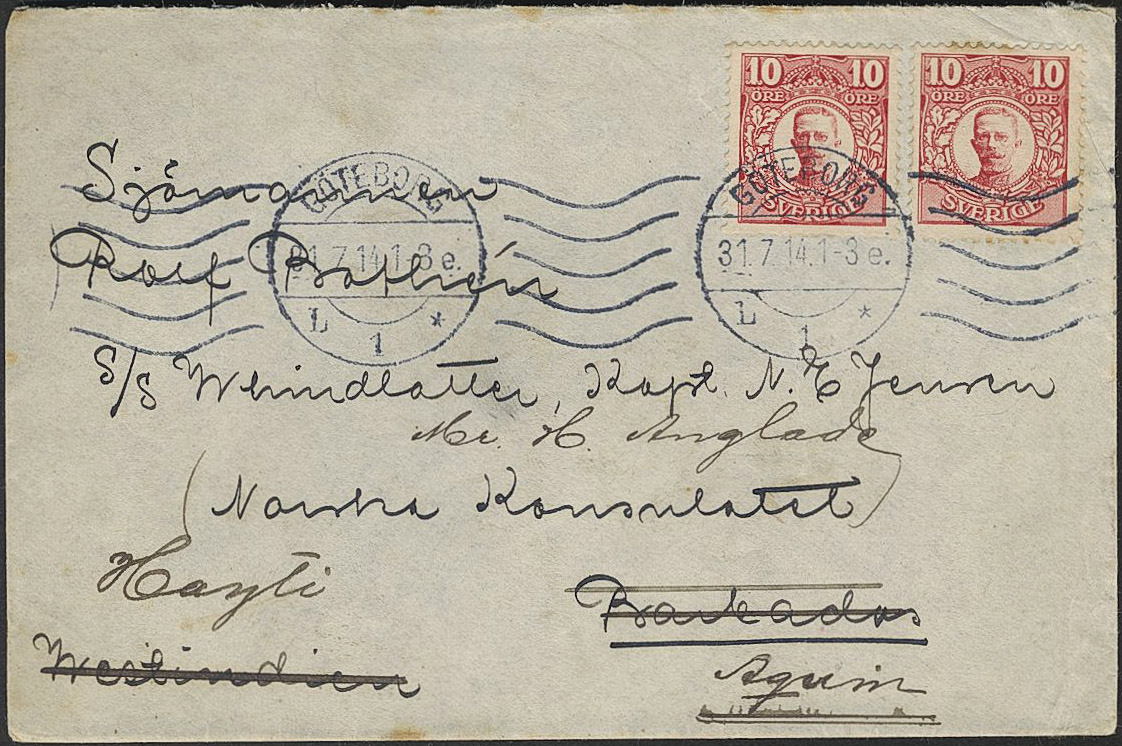 10 10
ÖRE ÖRE
SVERIGE
10 10
ÖRE ÖRE
SVERIGE
GÖTEBORG
31.7.14.1-3 e.
L 1 *
GÖTEBORG
31.7.14.1-3 e.
L 1 *
Sjömannen
Rolf
S/S Whindlatter, Kapt. N. E. Jensen
Mr. H. Anglade
(Norska Konsulatet)
Hayti
Barbados
Westindien
Aquin